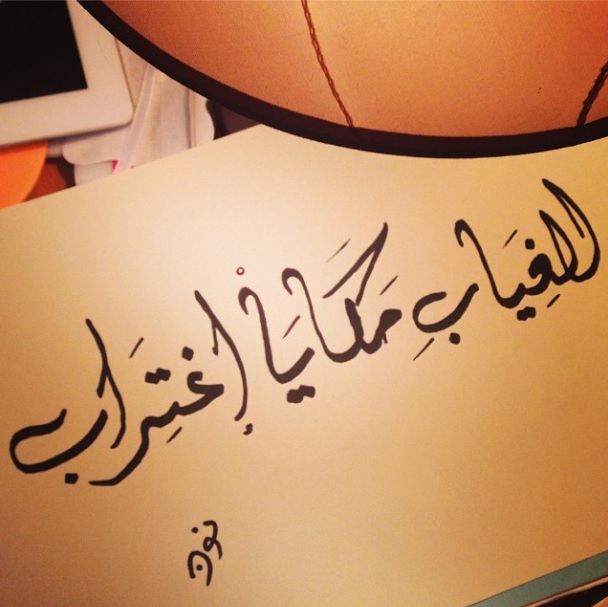 الغِيَابِ حَكَايَاْ إغتِرَاب
نون